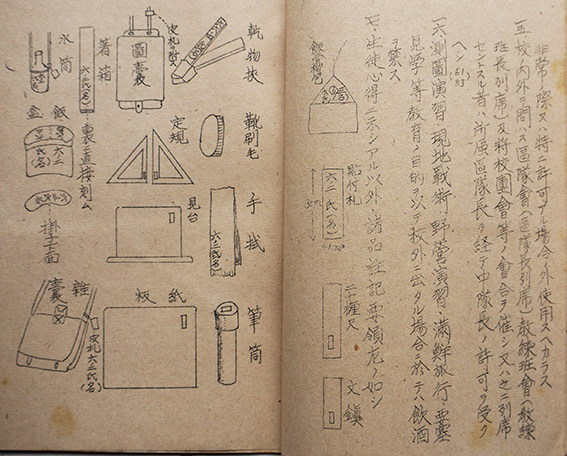 非常ノ際又ハ特ニ許可アル場合ノ外使用スヘカラス
五、校内外ヲ問ハス區隊會(區隊長列席)教練班會(教練
班長列席)及將校團會等ノ會合ヲ催シ又ハ之ニ列席
セントスル者ハ所属區隊長ヲ経テ中隊長ノ許可ヲ受ク
ヘシ
六、測圖演習、現地戰術、野營演習、滿鮮旅行、要塞
見学等教育ノ目的ヲ以テ校外ニ出タル場合ニ於テハ飲酒
ヲ禁ス
七、生徒心得ニ示シアル以外ノ諸品註記要領左ノ如シ
貼付札
六二氏(名)
二十糎尺
文鎮
乾物挾
靴刷毛
手拭
六二氏(名)
筆筒
圖嚢
定規
見台
紙板
箸箱
六二氏(名)
裏ニ直接刻ム
水筒
飯盒
六二氏(名)
掛子上面
雑嚢
皮札六二氏(名)